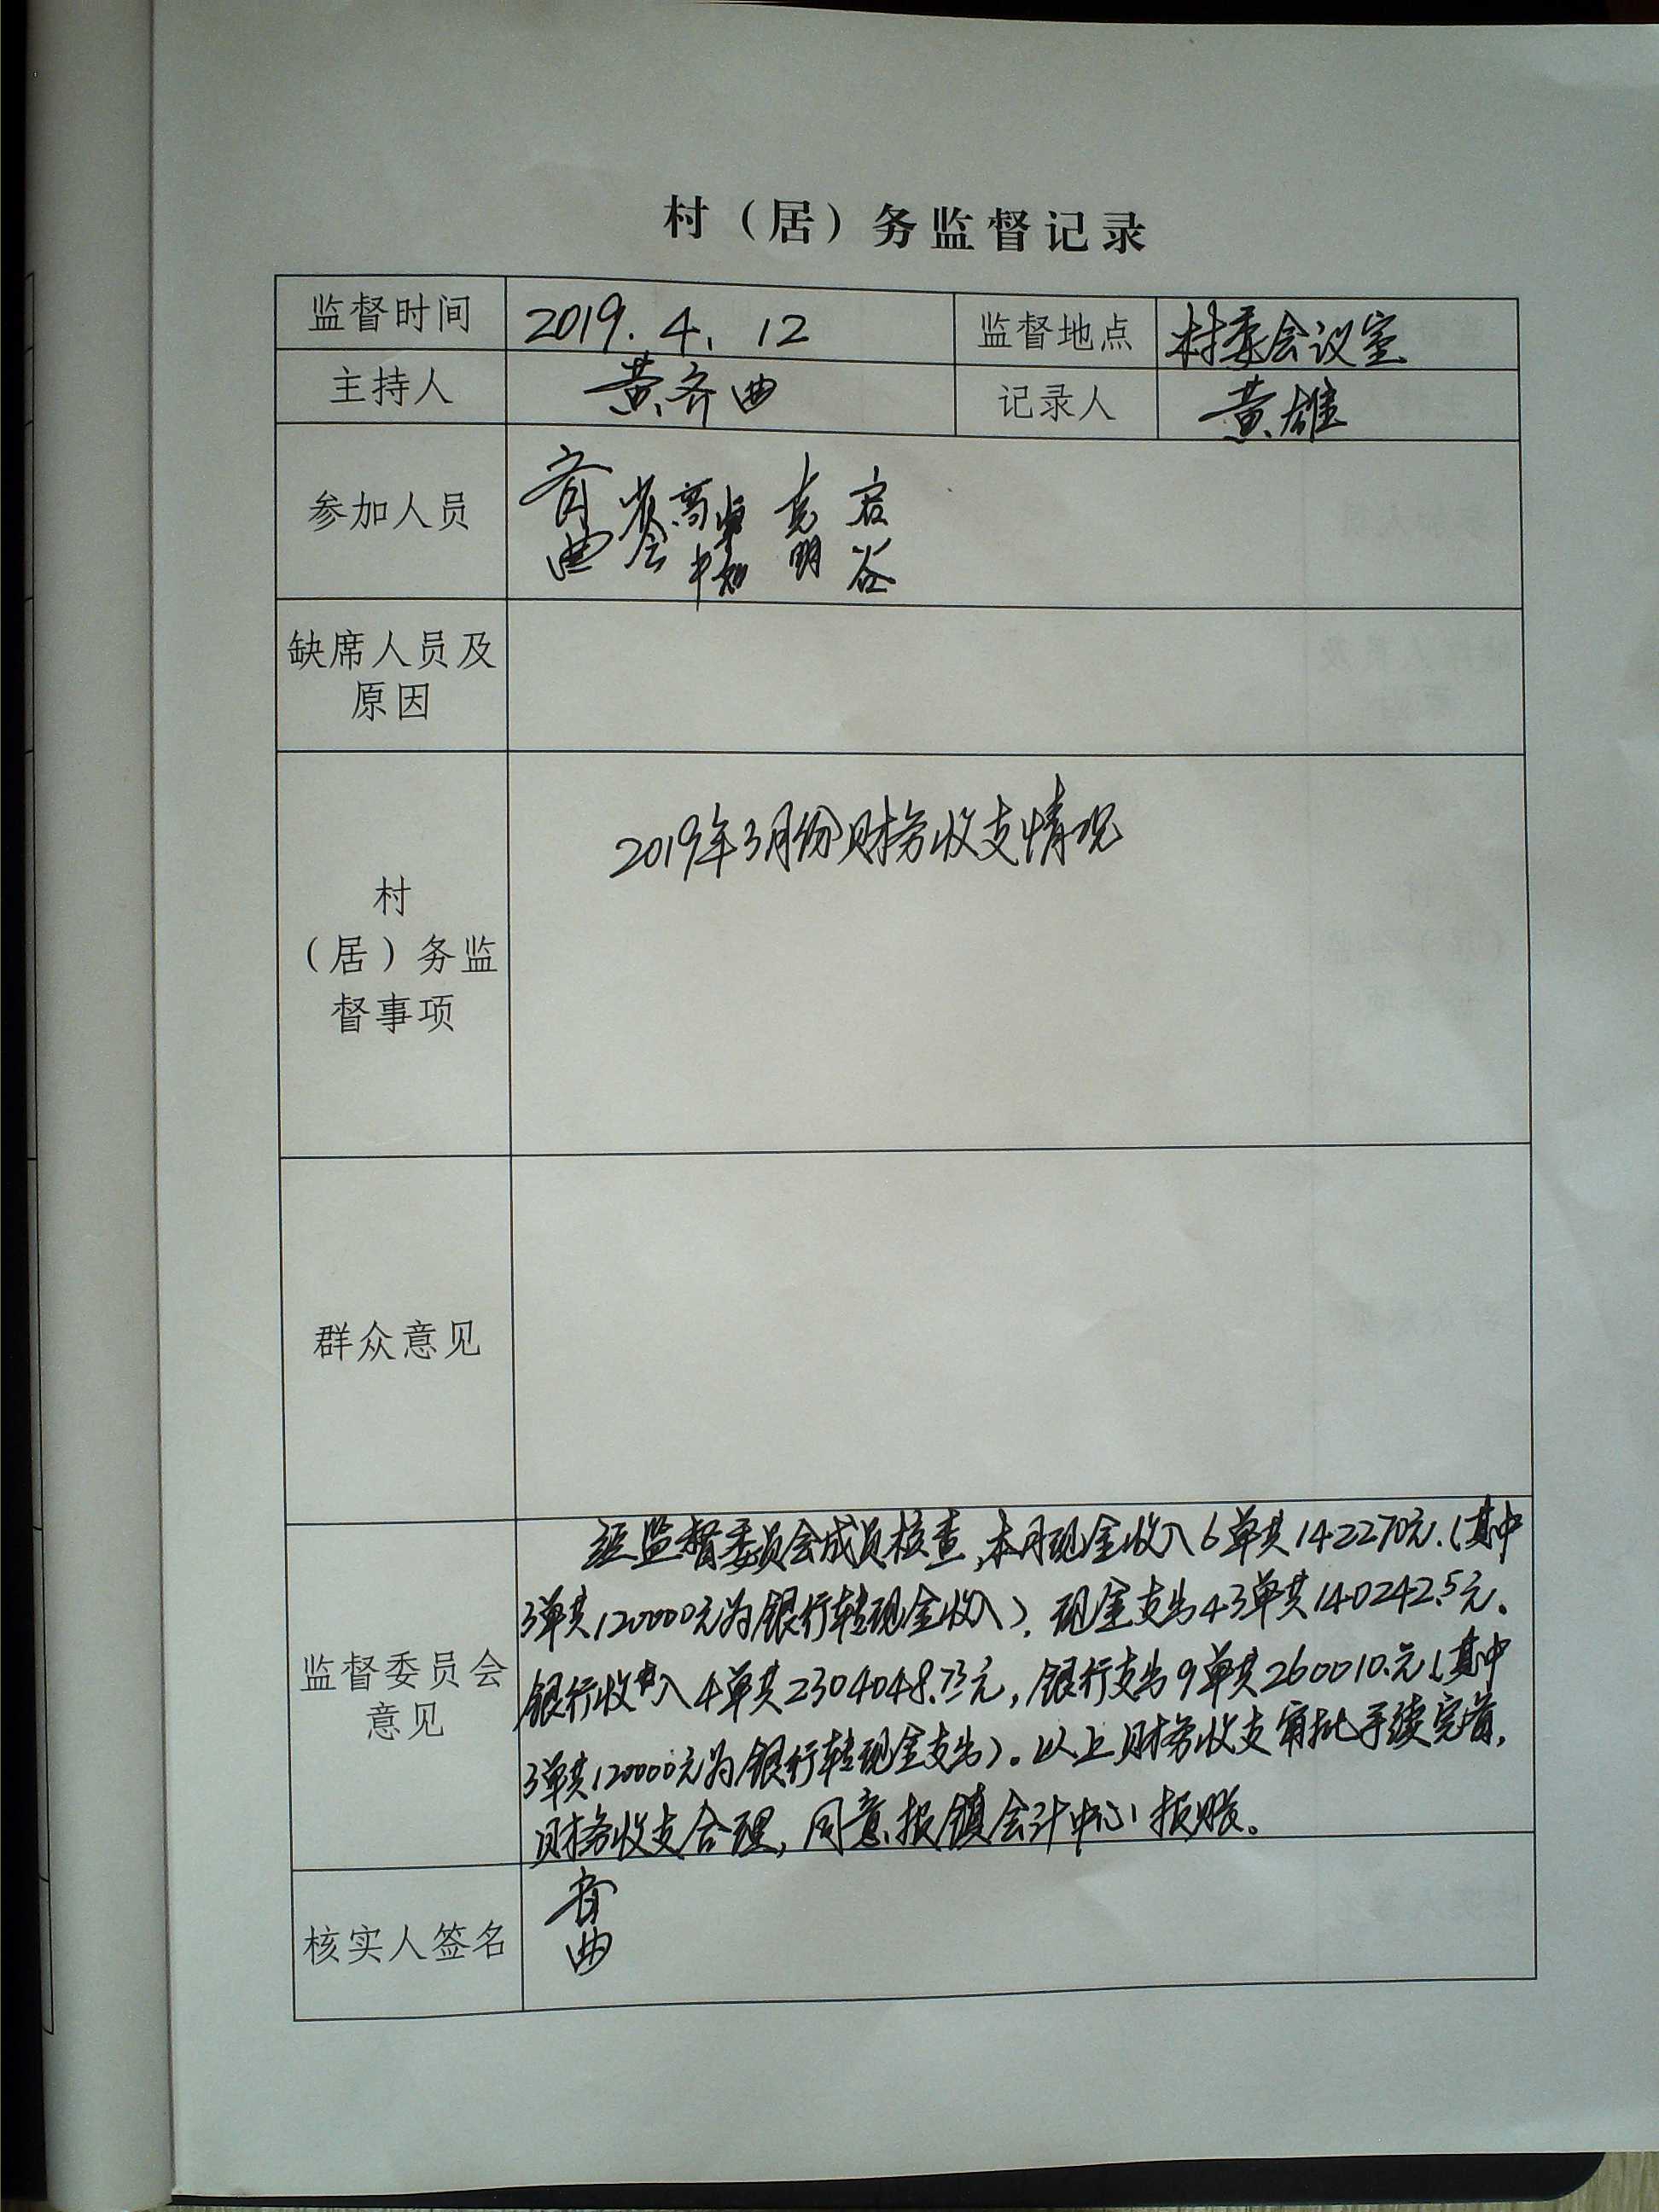 村（居）务监督记录
监督时间 2019.4.12 监督地点 村委会议室
主持人 黄齐曲 记录人 黄雄
参加人员
缺席人员及
原因
2019年3月份财务收支情况
村
（居）务监
督事项
群众意见
经监督委员会成员核查,本月现金收入6单共142270元.(其中
3单共120000元为银行转现金收入).现金支出43单共140242.5元.
银行收入4单共2304048.73元,银行支出9单共260010.元(其中
3单共120000元为银行转现金支出)。以上财务收支审批手续完善,
财务收支合理,同意报镇会计中心报账。
监督委员会
意见
核实人签名